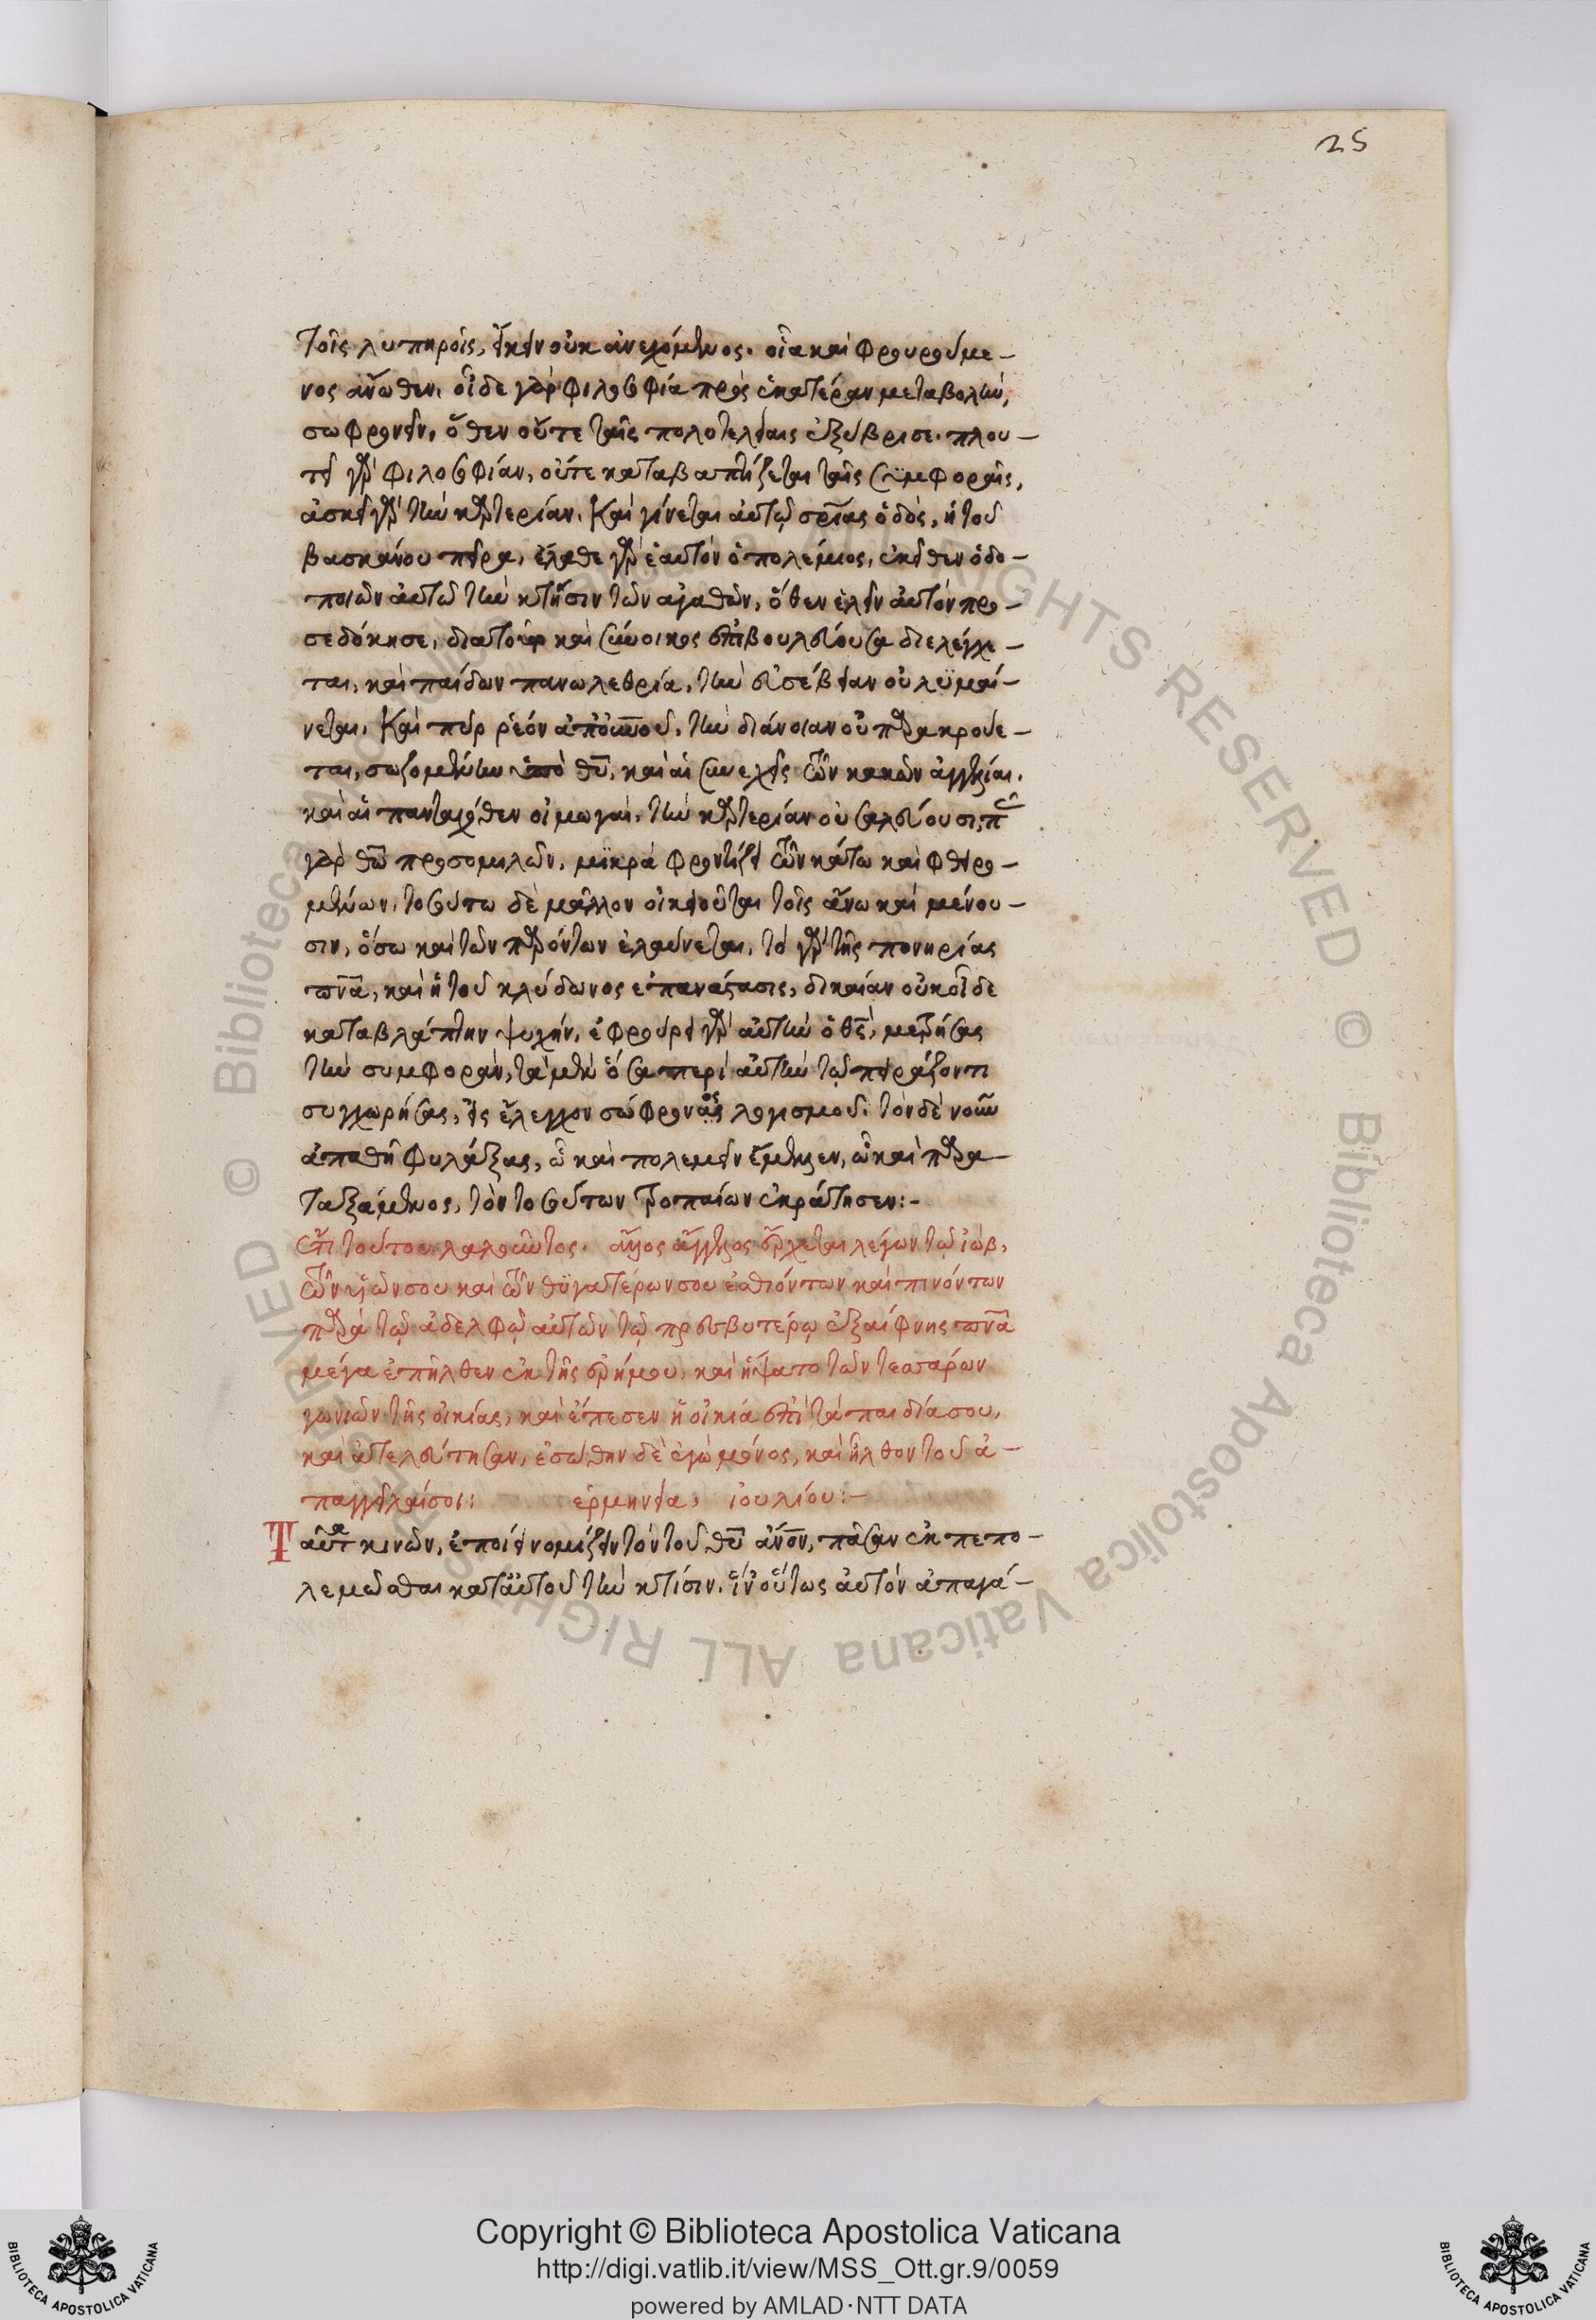 25
τοῖς λυπηροῖς, εἴκειν οὐκ ἀνεχόμενος. οἷα καὶ φρουρούμε-
νος ἄνωθεν. οἶδε γὰρ φιλοσοφία πρὸς ἑκατέραν μεταβολὴν,
σωφρονεῖν, ὅθεν οὔτε ταῖς πολυτελείαις ἐξύβρισε. πλου-
τεῖ γὰρ φιλοσοφίαν, οὔτε καταβαπτίζεται ταῖς συμφοραῖς,
ἀσκεῖ γὰρ τὴν καρτερίαν. Καὶ γίνεται αὐτῷ σρίας ὁδὸς, ἡ τοῦ
βασκάνου πεῖρα, ἔλαθε γὰρ ἑαυτὸν ὁ πολέμιος, ἐκεῖθεν ὁδο-
ποιῶν αὐτῶ τὴν κτῆσιν τῶν ἀγαθῶν, ὅθεν ἑλεῖν αὐτὸν προ-
σεδόκησε, διατοῦτο καὶ σύνοικος ἐπιβουλεύουσα διελέγχε-
ται, καὶ παίδων πανωλεθρία, τὴν εὐσέβειαν οὐ λυμαί-
νεται. Καὶ πῦρ ῥέον ἀπὸ οὐνοῦ, τὴν διάνοιαν οὐ παρακρούε-
ται, σωζομένην ὑπὸ θυ, καὶ αἱ συνεχεῖς τῶν κακῶν ἀγγελίαι.
καὶ αἱ πανταχόθεν οἰμωγαὶ, τὴν καρτερίαν οὐ σαλεύουσι,
γὰρ θω προσομιλῶν, μικρὰ φροντίζει τῶν κάτω καὶ φθειρο-
μένων, τοσούτω δὲ μᾶλλον οἰκειοῦται τοῖς ἄνω καὶ μένου-
σιν, ὅσω καὶ τῶν παρόντων ἐλαύνεται, τὸ γὰρ τῆς πονηρίας
πνα, καὶ ἡ τοῦ κλύδωνος ἐπανάστασις, δικαίαν οὐκ οἶδε
καταβλάπτειν ψυχήν, ἐφρούρει γὰρ αὐτὴν ὁ θς, μετρήσας
τὴν συμφορὰν, τὰ μὲν ὅσα περὶ αὐτὴν τῷ πειράζοντι
συγχωρήσας, εἰς ἔλεγχον σώφρονος λογισμοῦ. τὸν δὲ νοῦν
ἀπαθῆ φυλάξας, ᾧ καὶ πολεμεῖν ἔμελλεν, ᾧ καὶ παρα-
ταξάμενος, τὸν τοσούτων τροπαίων ἐκράτησεν:-
ἔτι τούτου λαλοῦντος. ἄλλος ἄγγελος ἔρχεται λέγων τῷ ἰὼβ,
τῶν υἱῶν σου καὶ τῶν θυγατέρων σου ἐσθιόντων καὶ πινόντων
παρὰ τῷ ἀδελφῷ αὐτῶν τῷ πρεσβυτέρῳ ἐξαίφνης πνα
μέγα ἐπῆλθεν ἐκ τῆς ἐρήμου, καὶ ἥψατο τῶν τεσσάρων
γωνιῶν τῆς οἰκίας, καὶ ἔπεσεν ἡ οἰκία ἐπὶ τὰ παιδία σου,
καὶ ἐτελεύτησαν, ἐσώθην δὲ ἐγὼ μόνος, καὶ ἦλθον τοῦ ἀ-
παγγεῖλαί σοι: ἑρμηνεία, ἰουλίου:-
Ταῦτα κινῶν, ἐποίει νομίζειν τὸν τοῦ θυ ἀνον, πᾶσαν ἐκπεπο-
λεμῶσθαι κατ' αὐτοῦ τὴν κτίσιν. ἵν' οὕτως αὐτὸν ἀπαγά-
Copyright © Biblioteca Apostolica Vaticana
http://digi.vatlib.it/view/MSS_Ott.gr.9/0059
powered by AMLAD·NTT DATA
BIBLIOTECA APOSTOLICA VATICANA
BIBLIOTECA APOSTOLICA VATICANA
© Biblioteca Apostolica Vaticana ALL RIGHTS RESERVED